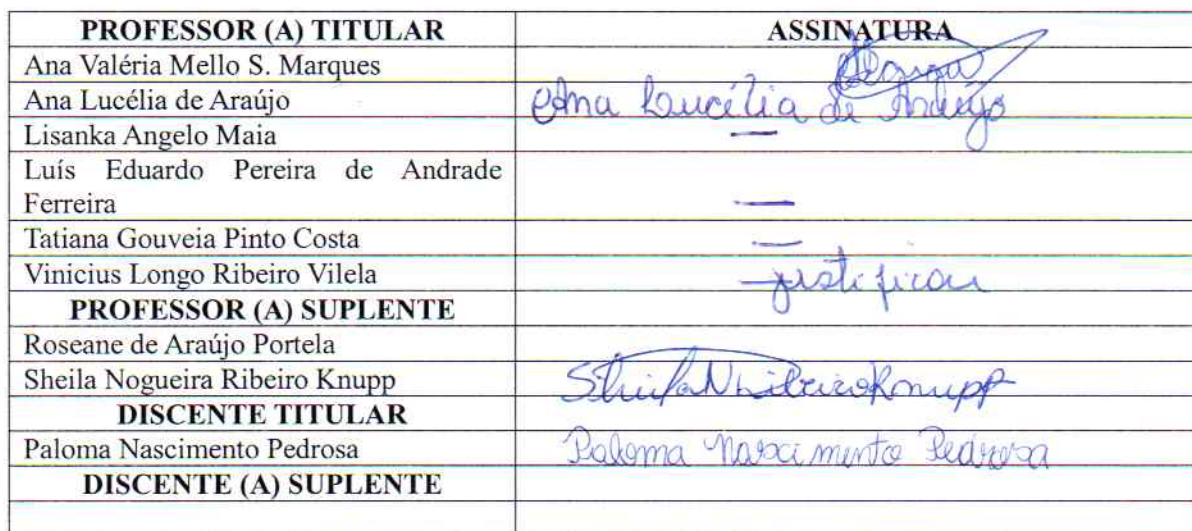 PROFESSOR (A) TITULAR ASSINATURA
Ana Valéria Mello S. Marques
Ana Lucélia de Araújo Ana Lucélia de Araújo
Lisanka Angelo Maia —
Luís Eduardo Pereira de Andrade
Ferreira —
Tatiana Gouveia Pinto Costa —
Vinicius Longo Ribeiro Vilela justificou
PROFESSOR (A) SUPLENTE
Roseane de Araújo Portela
Sheila Nogueira Ribeiro Knupp Sheila N Ribeiro Knupp
DISCENTE TITULAR
Paloma Nascimento Pedrosa Paloma Nascimento Pedrosa
DISCENTE (A) SUPLENTE